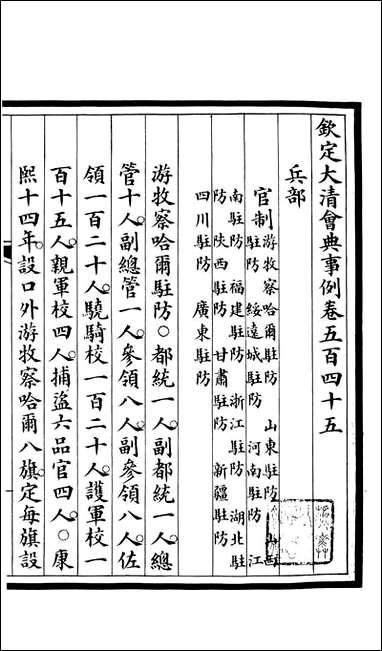 欽定大清會典事例卷五百四十五
兵部
官制
游牧察哈爾駐防 山東駐防 山西
駐防 綏遠城駐防 河南駐防 江
南駐防 福建駐防 浙江駐防 湖北駐
防 陝西駐防 甘肅駐防 新疆駐防
四川駐防 廣東駐防
游牧察哈爾駐防○都統一人。副都統一人。總
管十人。副總管一人。參領八人。副參領八人。佐
領一百二十人。驍騎校一百二十人。護軍校一
百十五人。親軍校四人。捕盜六品官四人。○康
熙十四年。設口外游牧察哈爾八旗。定每旗設